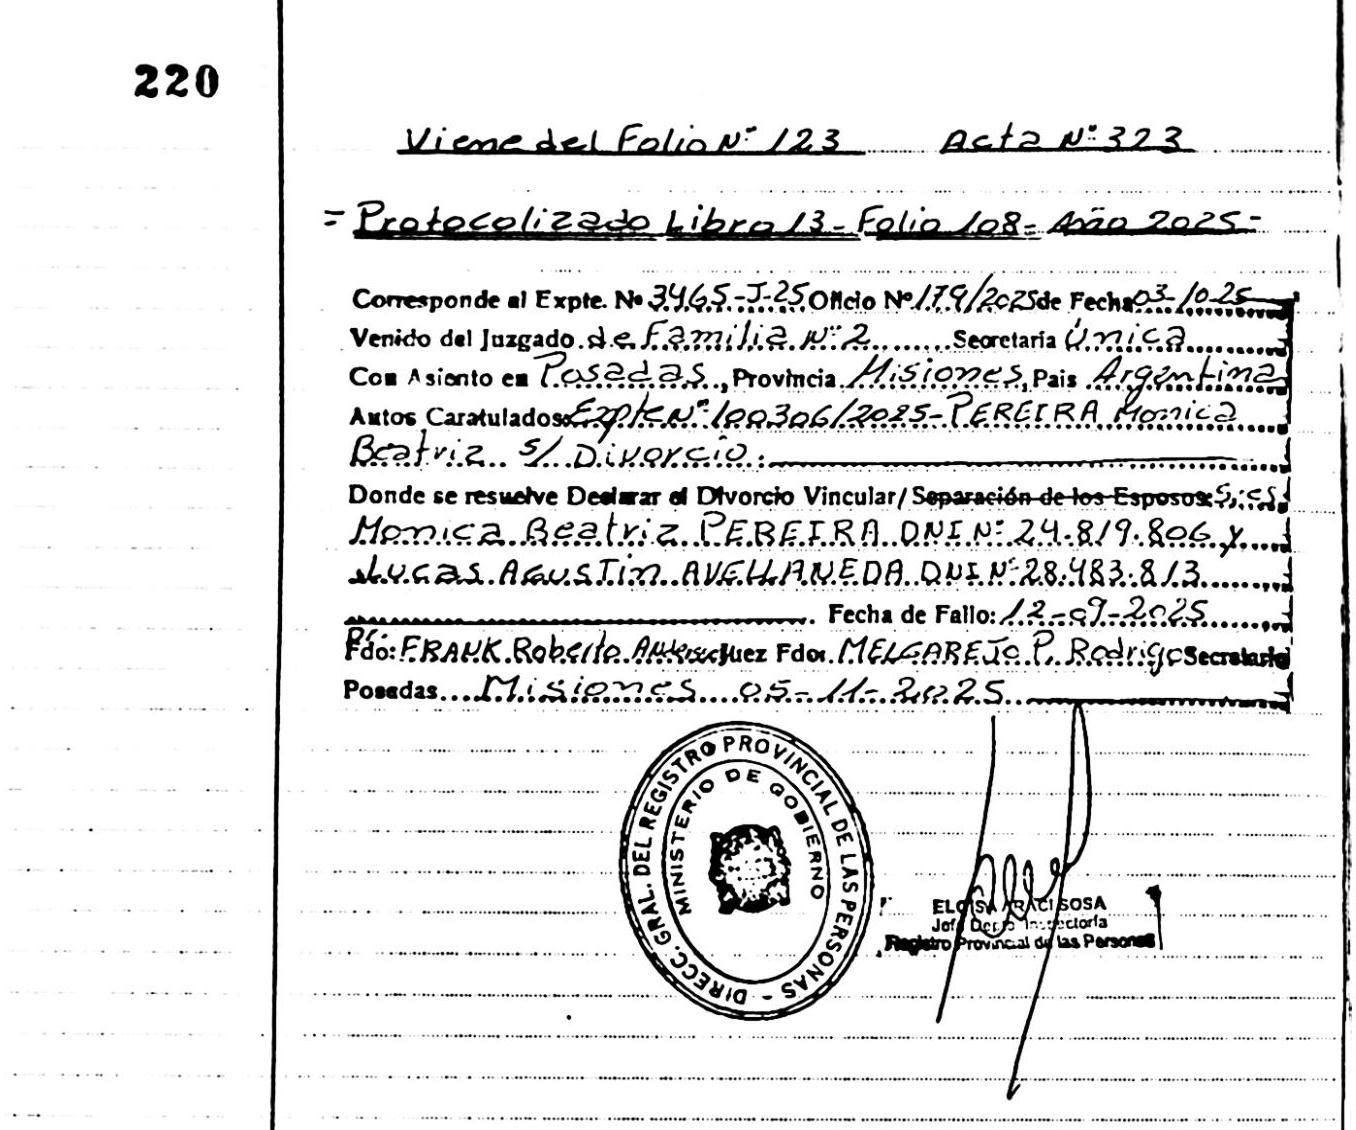 220
Viene del Folio Nº 123 Acta Nº 323
= Protocolizado Libro 13 - Folio 108 = Año 2025 =
Corresponde al Expte. Nº 3465-J-25 Oficio Nº 179/2025 de Fecha 03-10-25
Venido del Juzgado de Familia Nº 2 Secretaria Única
Con Asiento en Posadas, Provincia Misiones, Pais Argentina
Autos Caratulados: Expte Nº 100306/2025-PEREIRA Monica
Beatriz s/ Divorcio.
Donde se resuelve Declarar el Divorcio Vincular/ Separación de los Esposos: S.res.
Monica Beatriz PEREIRA DNI Nº 24.819.806 y
Lucas Agustin AVELLANEDA DNI Nº 28.483.813
Fecha de Fallo: 12-09-2025
Fdo: Dr. FRANK Roberto Juez Fdo: MELGAREJO P. Rodrigo Secretario
Posadas Misiones 05-11-2025
DIRECC. GRAL. DEL REGISTRO PROVINCIAL DE LAS PERSONAS -
MINISTERIO DE GOBIERNO
SOSA
Jefe Depto. Inspectoría
Registro Provincial de las Personas